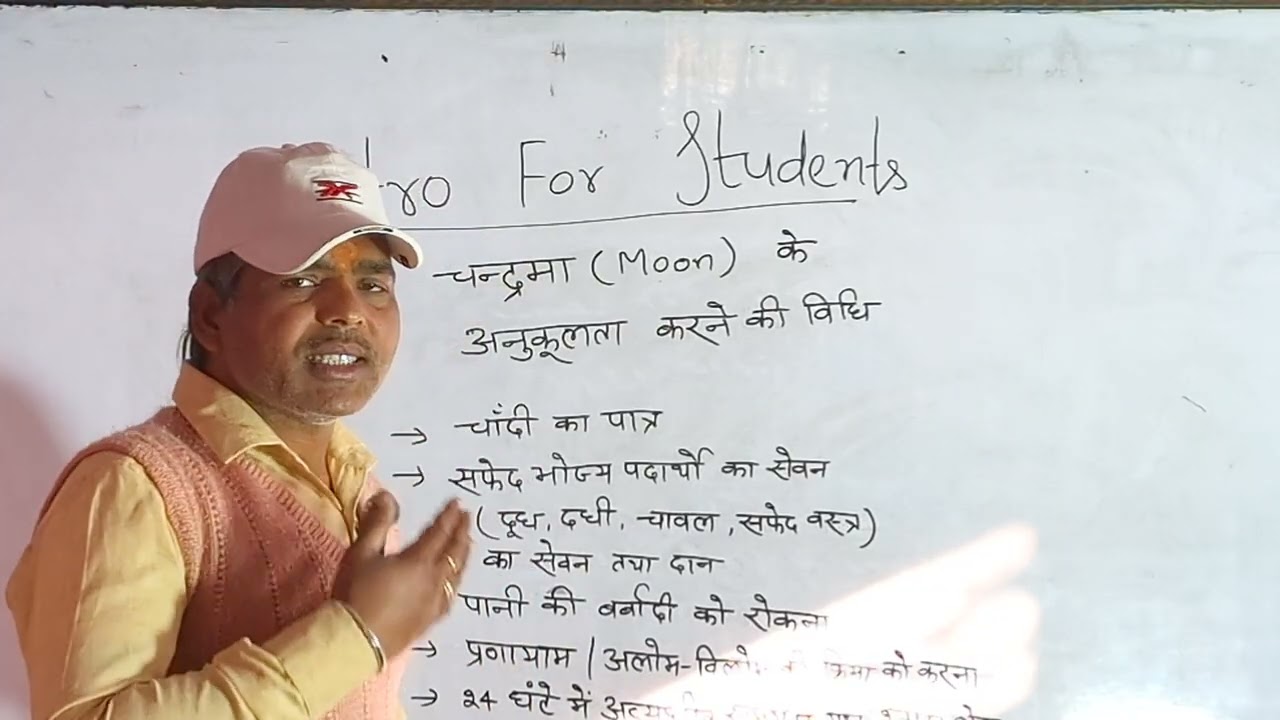 ro For Students
चन्द्रमा (Moon) के
अनुकूलता करने की विधि
→ चाँदी का पात्र
→ सफेद भोज्य पदार्थो का सेवन
(दूध, दधी, चावल, सफेद वस्त्र)
का सेवन तथा दान
पानी की बर्बादी को रोकना
→ प्रणायाम / अलोम-विलोम की क्रिया को करना
→ २४ घंटे में